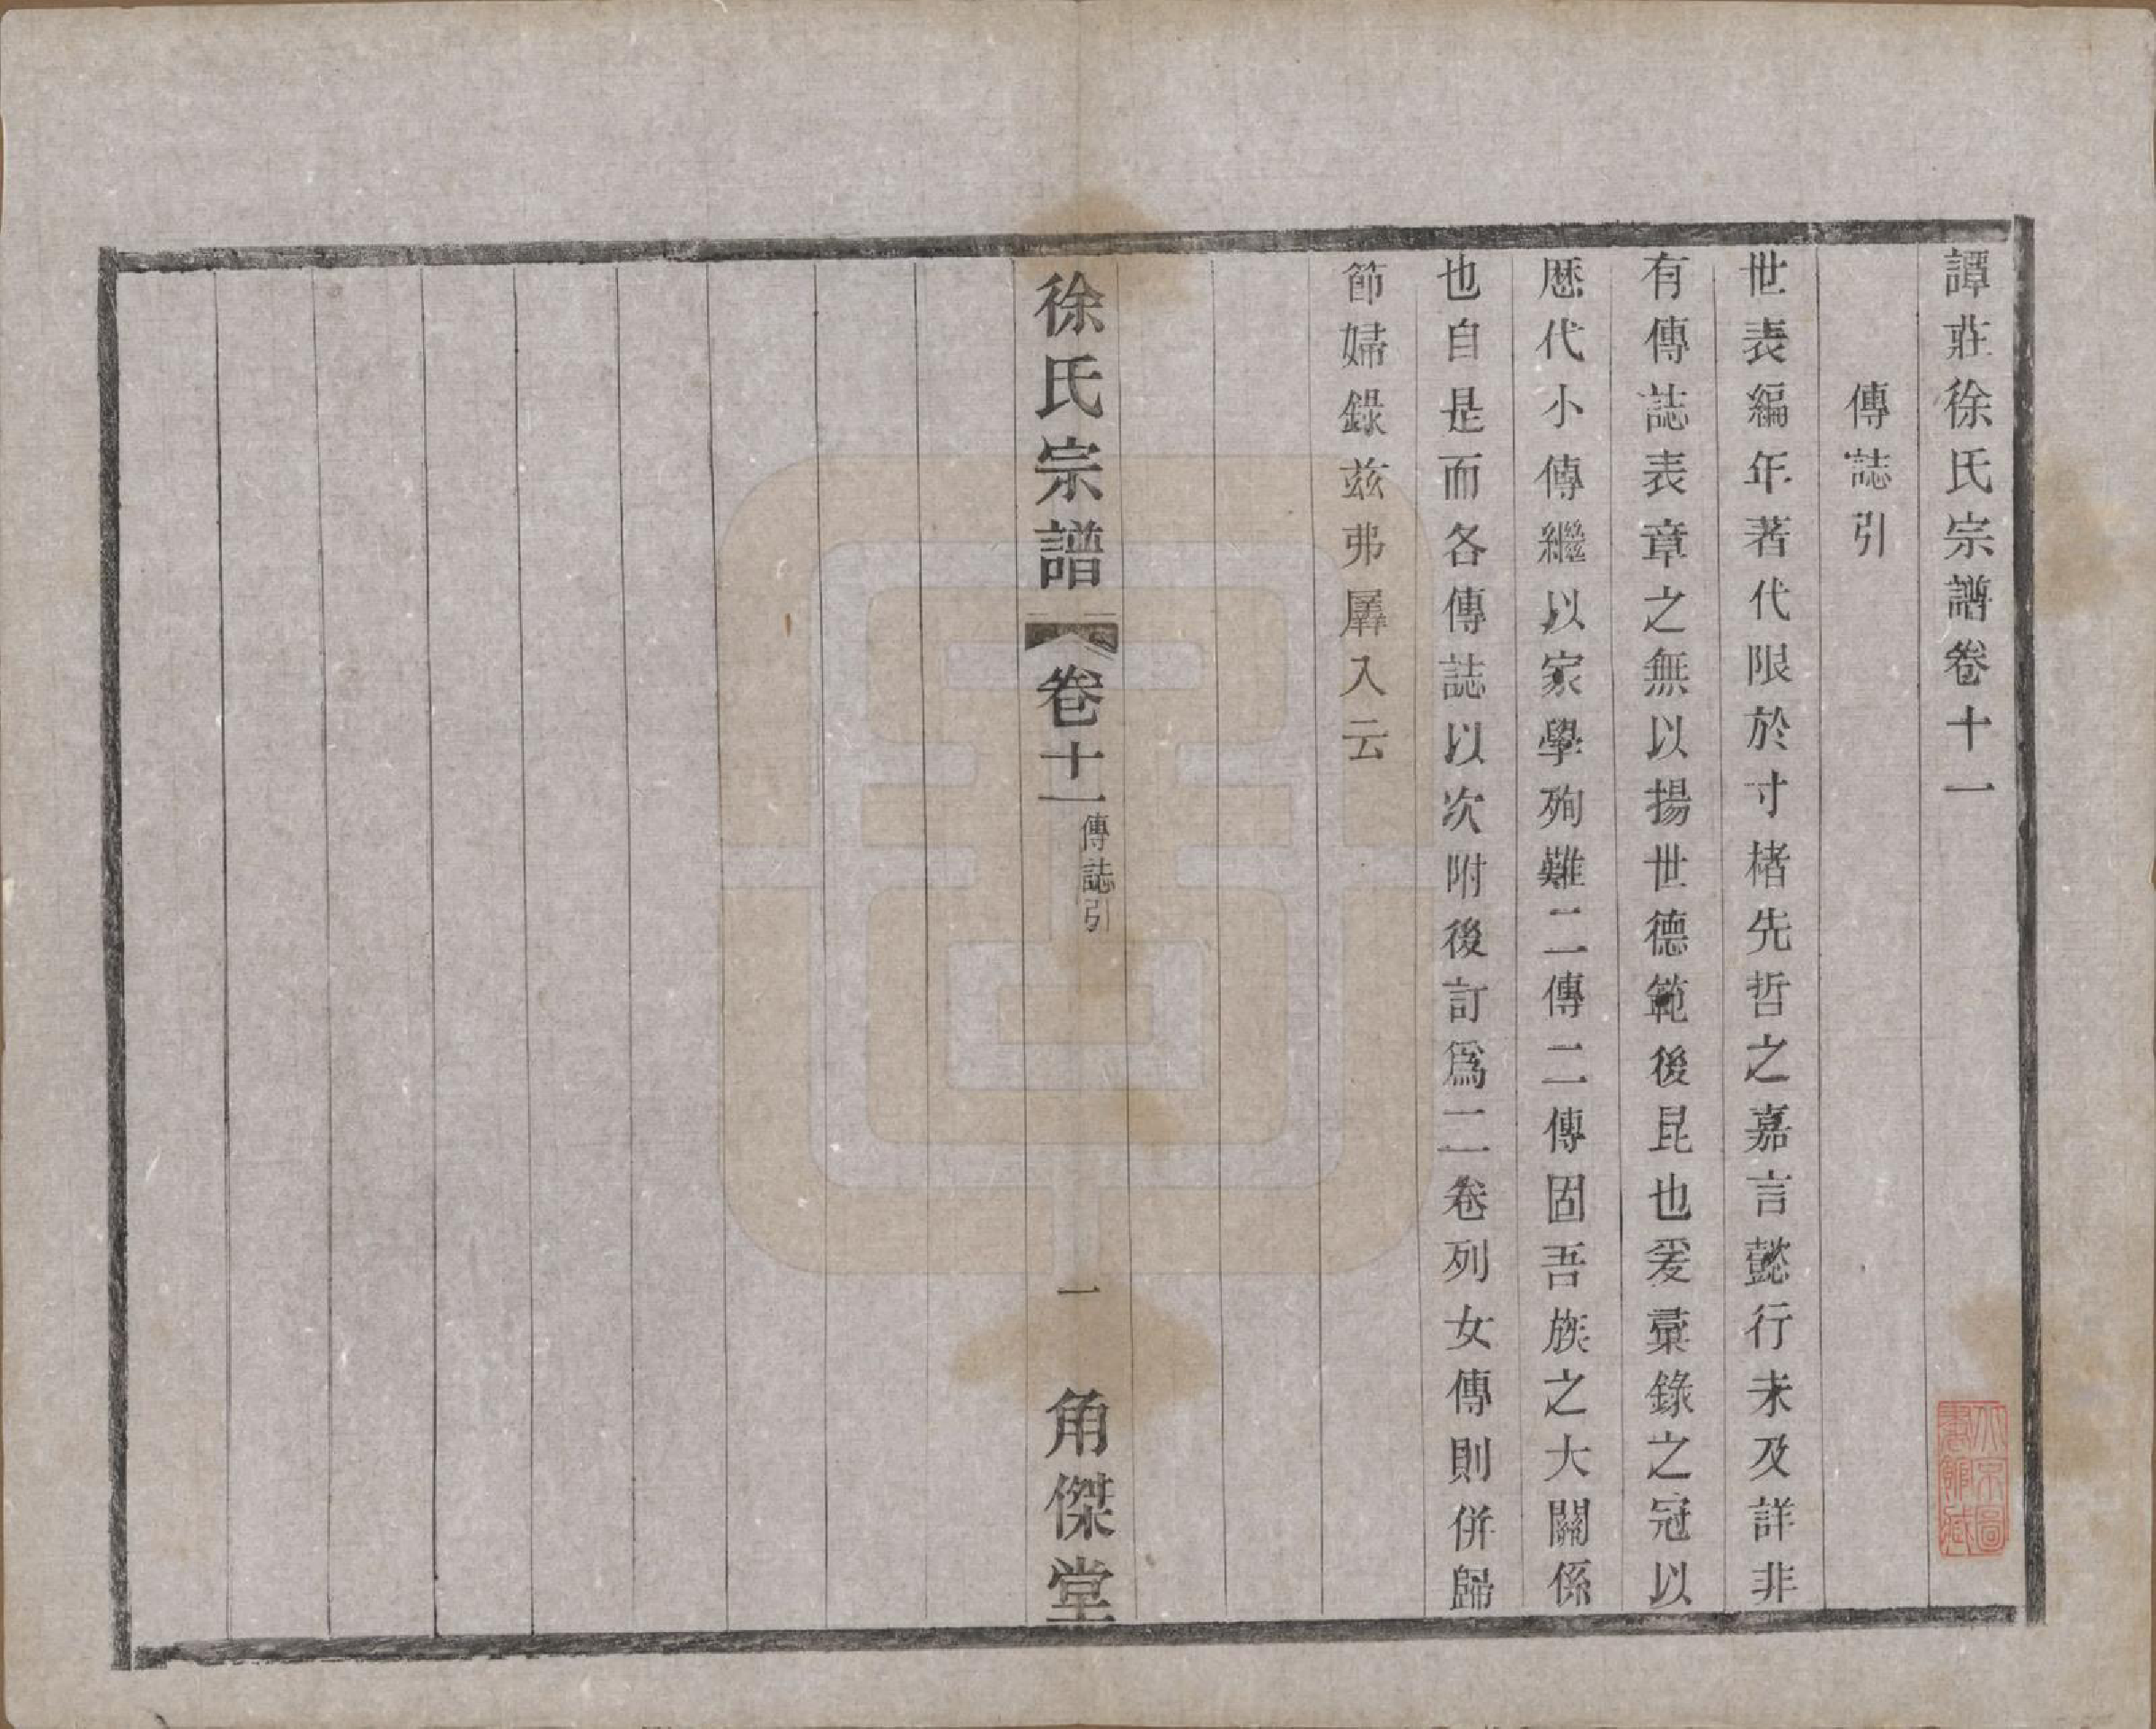 譚莊徐氏宗譜卷十一
傳誌引
世表編年著代限於寸楮先哲之嘉言懿行未及詳非
有傳誌表章之無以揚世德範後昆也爰彙錄之冠以
歷代小傳繼以家學殉難二傳二傳固吾族之大關係
也自是而各傳誌以次附後訂爲二卷列女傳則併歸
節婦錄茲弗羼入云
徐氏宗譜 卷十一 傳誌引 一 角傑堂